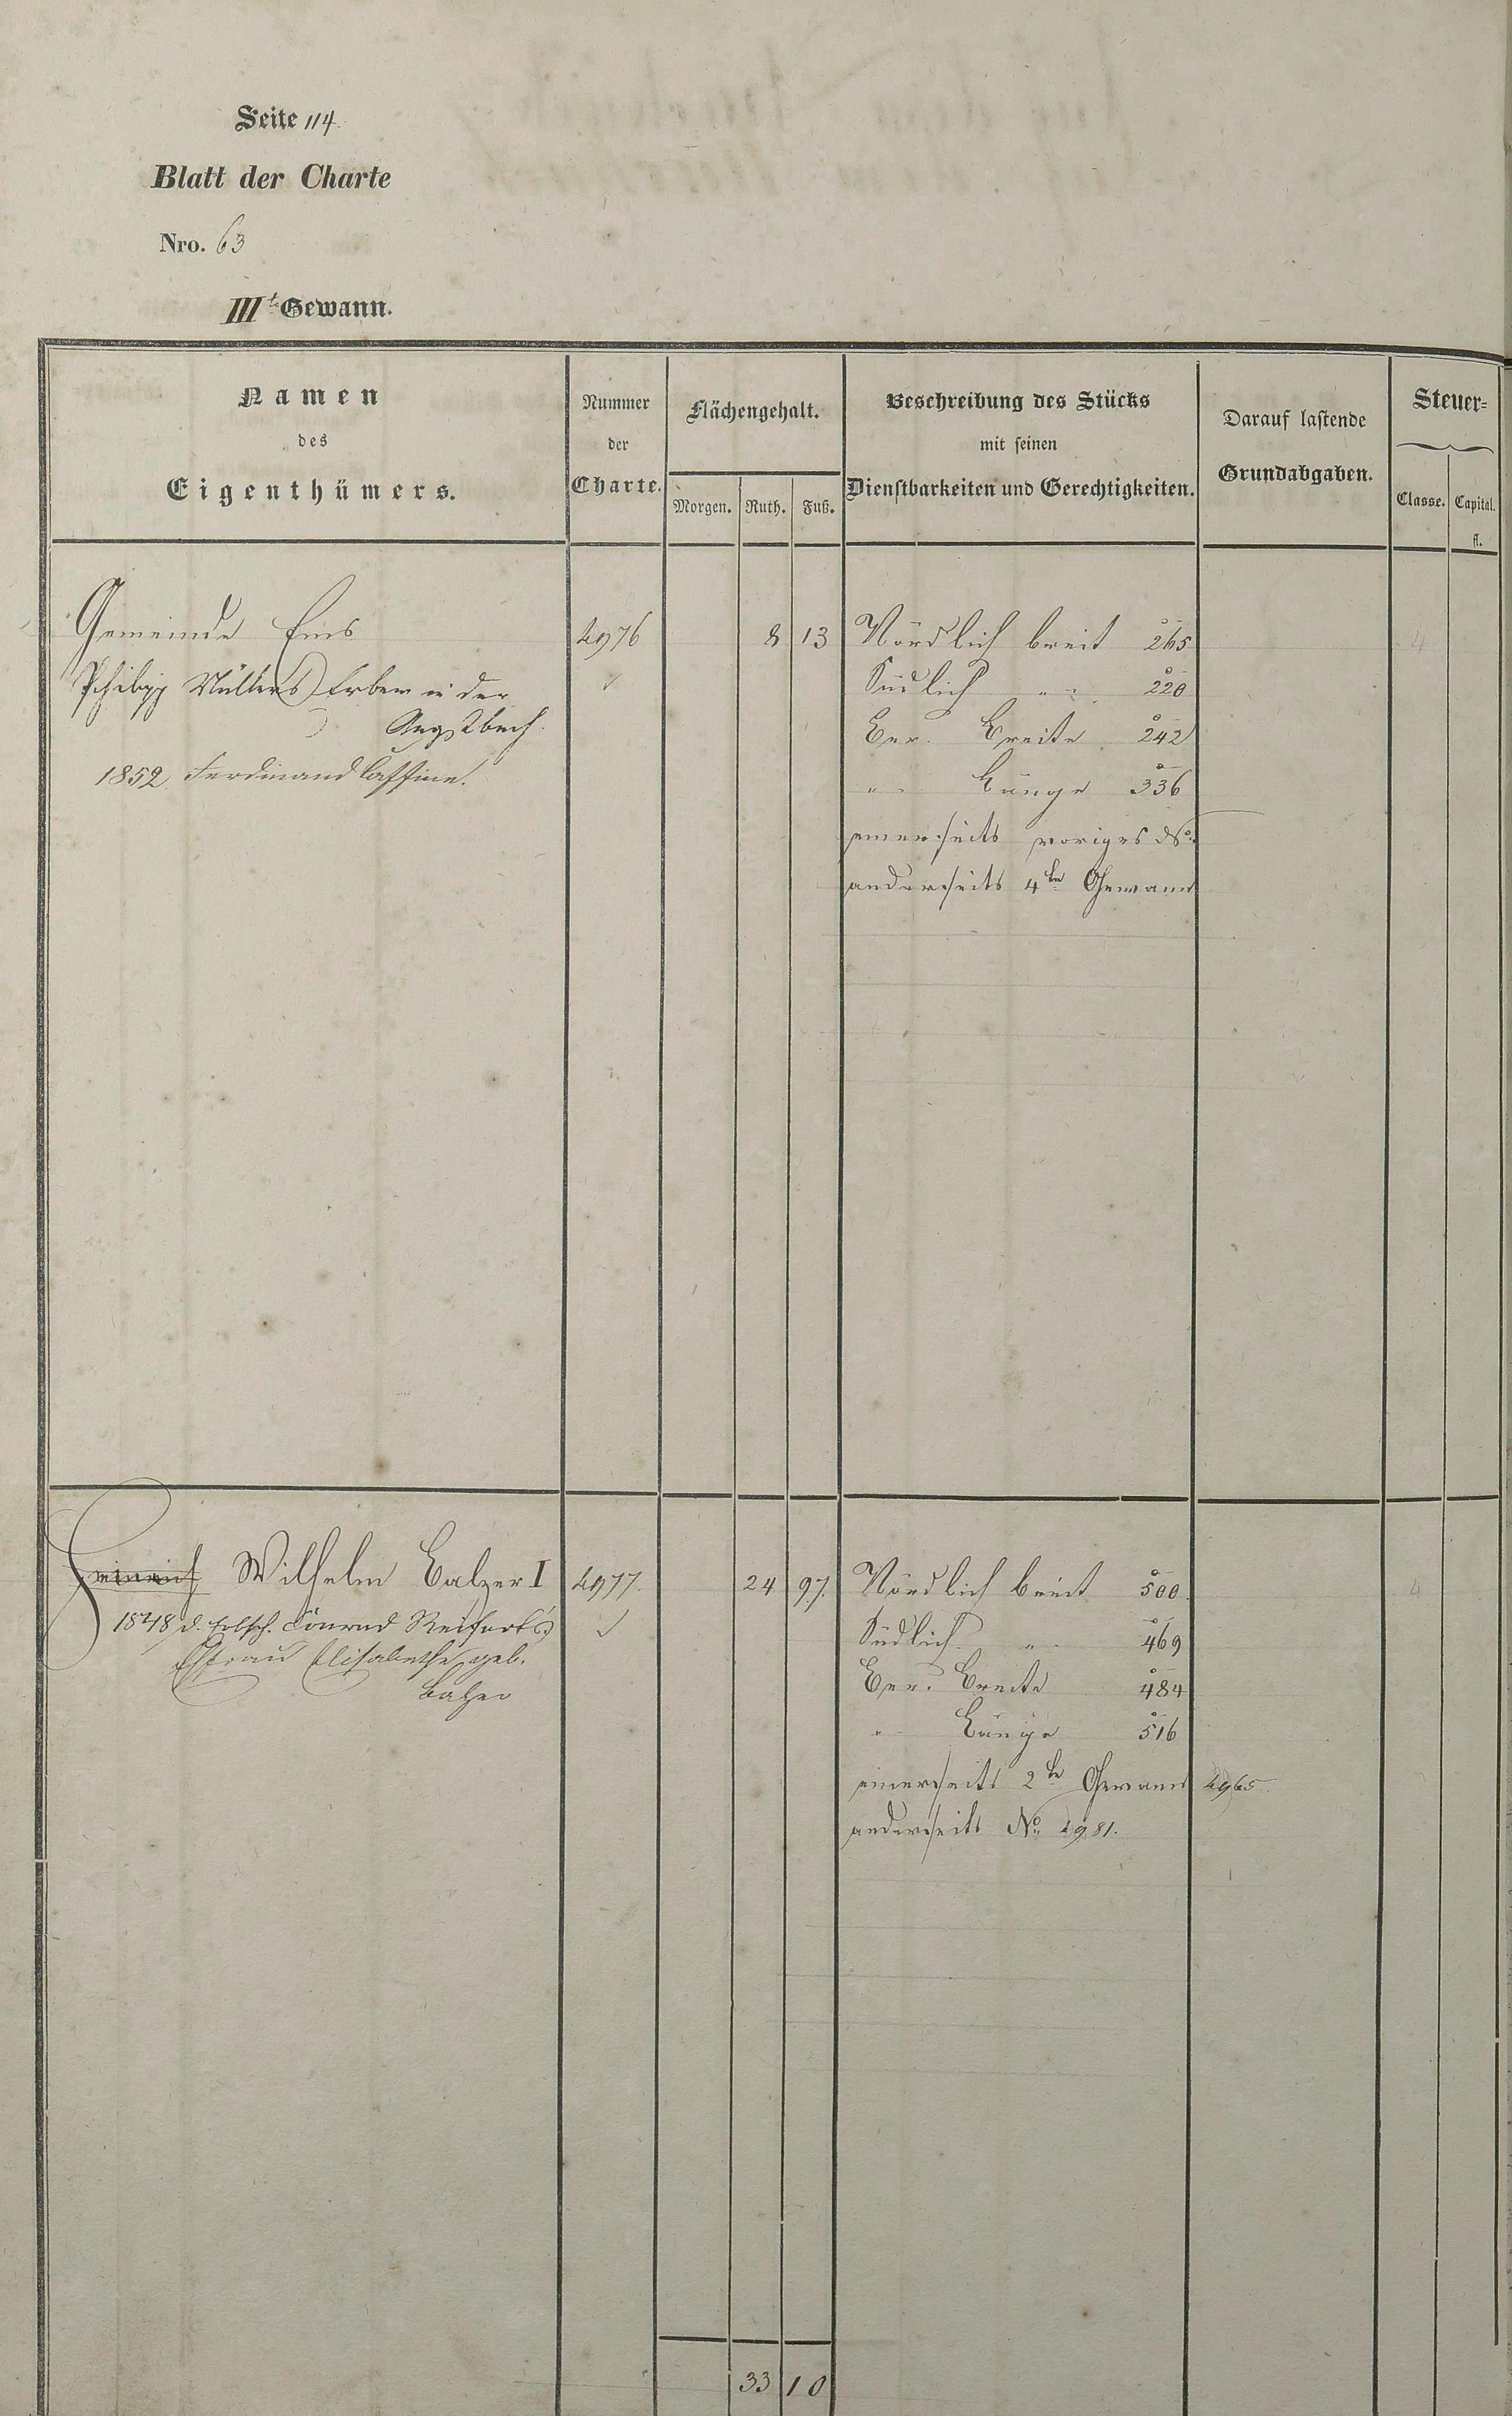 Seite 114.
Blatt der Charte
Nro. 63
III te Gewann.
Namen
des
Eigenthümers.
Nummer
der
Charte.
Flächengehalt.
Morgen. Ruth. Fuß.
Beschreibung des Stücks
mit seinen
Dienstbarkeiten und Gerechtigkeiten.
Darauf lastende
Grundabgaben.
Steuer=
Classe. Capital.
fl.
Gemeinde Ems 4976 8 13 Nördlich breit 265 4
Philipp Müllers Erben in der Südlich " 220
Ber. Breite 242
1852 Ferdinand
" Länge 336
einerseits voriges
anderseits 4te Gewann
Heinrich Wilhelm Balzer I 4977. 24 97. Nördlich breit 500. 4
1848 d. Erbsch. Conrad Reiferts Südlich " 469
Ehefrau Elisabethe geb. Ber. Breite 484
Balzer
" Länge 516
einerseits 2te Gewann 4965
anderseits No. 4981.
33 10